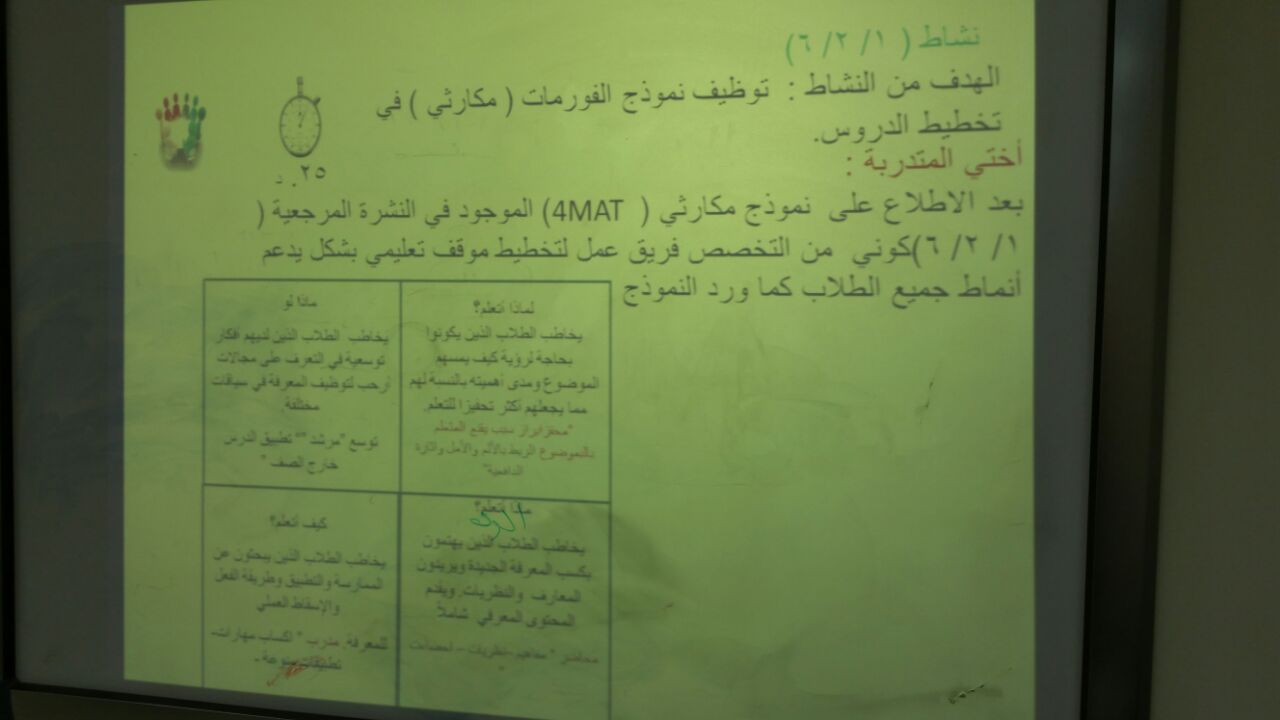 نشاط ( ١/ ٢/ ٦)
الهدف من النشاط : توظيف نموذج الفورمات ( مكارثي ) في
تخطيط الدروس.
٢٥. د
أختي المتدربة :
بعد الاطلاع على نموذج مكارثي ( 4MAT) الموجود في النشرة المرجعية (
١/ ٢/ ٦)كوني من التخصص فريق عمل لتخطيط موقف تعليمي بشكل يدعم
أنماط جميع الطلاب كما ورد النموذج
لماذا أتعلم؟
يخاطب الطلاب الذين يكونوا
بحاجة لرؤية كيف يمسهم
الموضوع ومدى أهميته بالنسبة لهم
مما يجعلهم أكثر تحفيزا للتعلم.
سبب يقنع المتعلم
بالموضوع الربط بالألم والأمل واثارة
الدافعية"
ماذا لو
يخاطب الطلاب الذين لديهم أفكار
توسعية في التعرف على مجالات
أرحب لتوظيف المعرفة في سياقات
مختلفة.
توسع "مرشد "" تطبيق الدرس
خارج الصف "
ماذا أتعلم؟
يخاطب الطلاب الذين يهتمون
بكسب المعرفة الجديدة ويريدون
المعارف والنظريات. ويقدم
المحتوى المعرفي شاملاً
محاضر " مفاهيم –نظريات –
كيف أتعلم؟
يخاطب الطلاب الذين يبحثون عن
الممارسة والتطبيق وطريقة الفعل
والإسقاط العملي
للمعرفة. مدرب " اكساب مهارات-